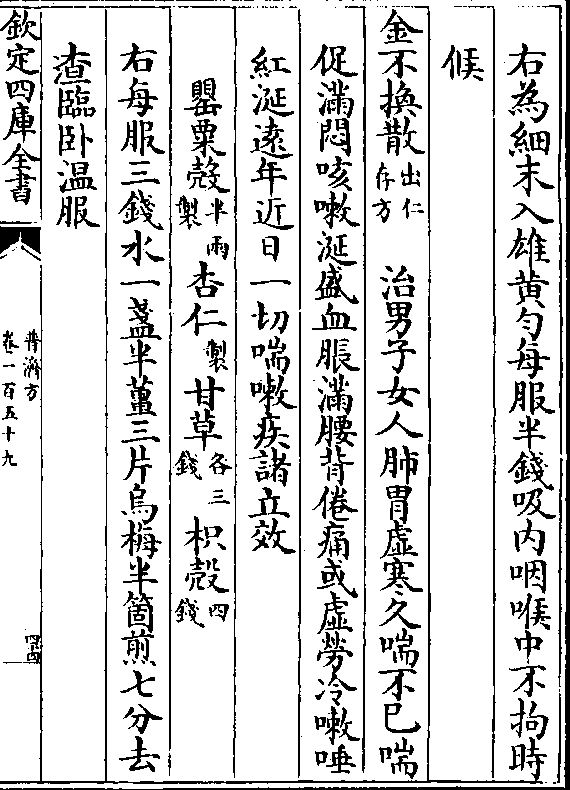 右為細末入雄黄勻每服半錢吸内咽喉中不拘時
候
金不換散出仁存方　治男子女人肺胃虚寒久喘不已喘
促滿悶咳嗽涎盛血脹滿腰背倦痛或虚勞冷嗽唾
紅涎遠年近日一切喘嗽疾諸立效
罌粟殻半兩製　杏仁製　甘草各三錢　枳殻四錢
右每服三錢水一盞半薑三片烏梅半箇煎七分去
渣臨卧温服
欽定四庫全書
普濟方
卷一百五十九
四四